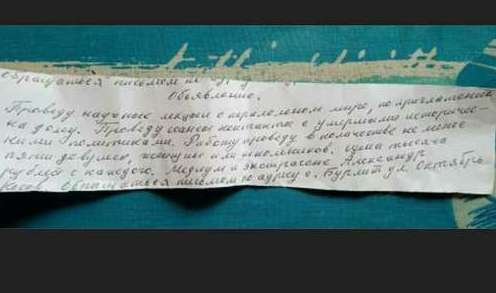 обращаться письмом по
Объявление.
Проведу научные лекции о параллельном мире, по приглашению
на дому. Проведу сеансы контактов с умершими историчес-
кими политиками. Работу проведу в количестве не менее
пяти девушек, женщин или школьников. Цена тысяча
рублей с каждого. Медиум и экстрасенс Александр
обращаться письмом по адресу с. Бурлит ул. Октябрь